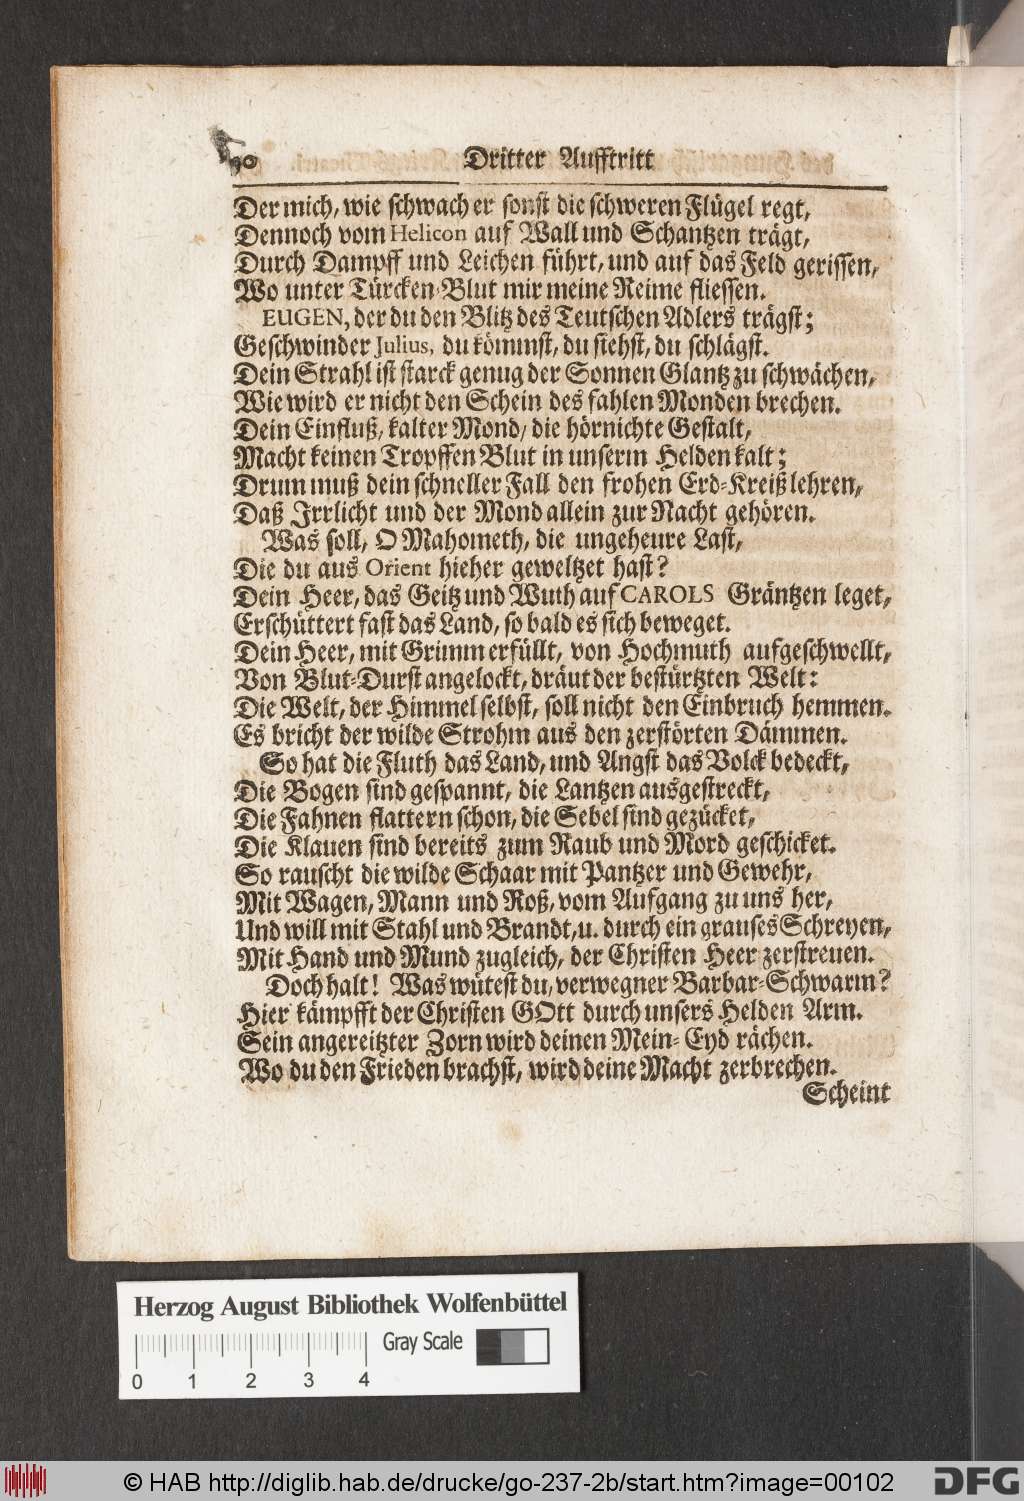 90 Dritter Aufftritt
Der mich, wie schwach er sonst die schweren Flügel regt,
Dennoch vom Helicon auf Wall und Schantzen trägt,
Durch Dampff und Leichen führt, und auf das Feld gerissen,
Wo unter Türcken-Blut mir meine Reime fliessen.
EUGEN, der du den Blitz des Teutschen Adlers trägst;
Geschwinder Julius, du kömmst, du siehst, du schlägst.
Dein Strahl ist starck genug der Sonnen Glantz zu schwächen,
Wie wird er nicht den Schein des fahlen Monden brechen.
Dein Einfluß, kalter Mond, die hörnichte Gestalt,
Macht keinen Tropffen Blut in unserm Helden kalt;
Drum muß dein schneller Fall den frohen Erd-Kreiß lehren,
Daß Irrlicht und der Mond allein zur Nacht gehören.
Was soll, O Mahometh, die ungeheure Last,
Die du aus Orient hieher geweltzet hast?
Dein Heer, das Geitz und Wuth auf CAROLS Gräntzen leget,
Erschüttert fast das Land, so bald es sich beweget.
Dein Heer, mit Grimm erfüllt, von Hochmuth aufgeschwellt,
Von Blut-Durst angelockt, dräut der bestürtzten Welt:
Die Welt, der Himmel selbst, soll nicht den Einbruch hemmen.
Es bricht der wilde Strohm aus den zerstörten Dämmen.
So hat die Fluth das Land, und Angst das Volck bedeckt,
Die Bogen sind gespannt, die Lantzen ausgestreckt,
Die Fahnen flattern schon, die Sebel sind gezücket,
Die Klauen sind bereits zum Raub und Mord geschicket.
So rauscht die wilde Schaar mit Pantzer und Gewehr,
Mit Wagen, Mann und Roß, vom Aufgang zu uns her,
Und will mit Stahl und Brandt, u. durch ein grauses Schreyen,
Mit Hand und Mund zugleich, der Christen Heer zerstreuen.
Doch halt! Was wütest du, verwegner Barbar-Schwarm?
Hier kämpfft der Christen GOtt durch unsers Helden Arm.
Sein angereitzter Zorn wird deinen Mein-Eyd rächen.
Wo du den Frieden brachst, wird deine Macht zerbrechen.
Scheint
Herzog August Bibliothek Wolfenbüttel
Gray Scale
0 1 2 3 4
© HAB http://diglib.hab.de/drucke/go-237-2b/start.htm?image=00102
DFG